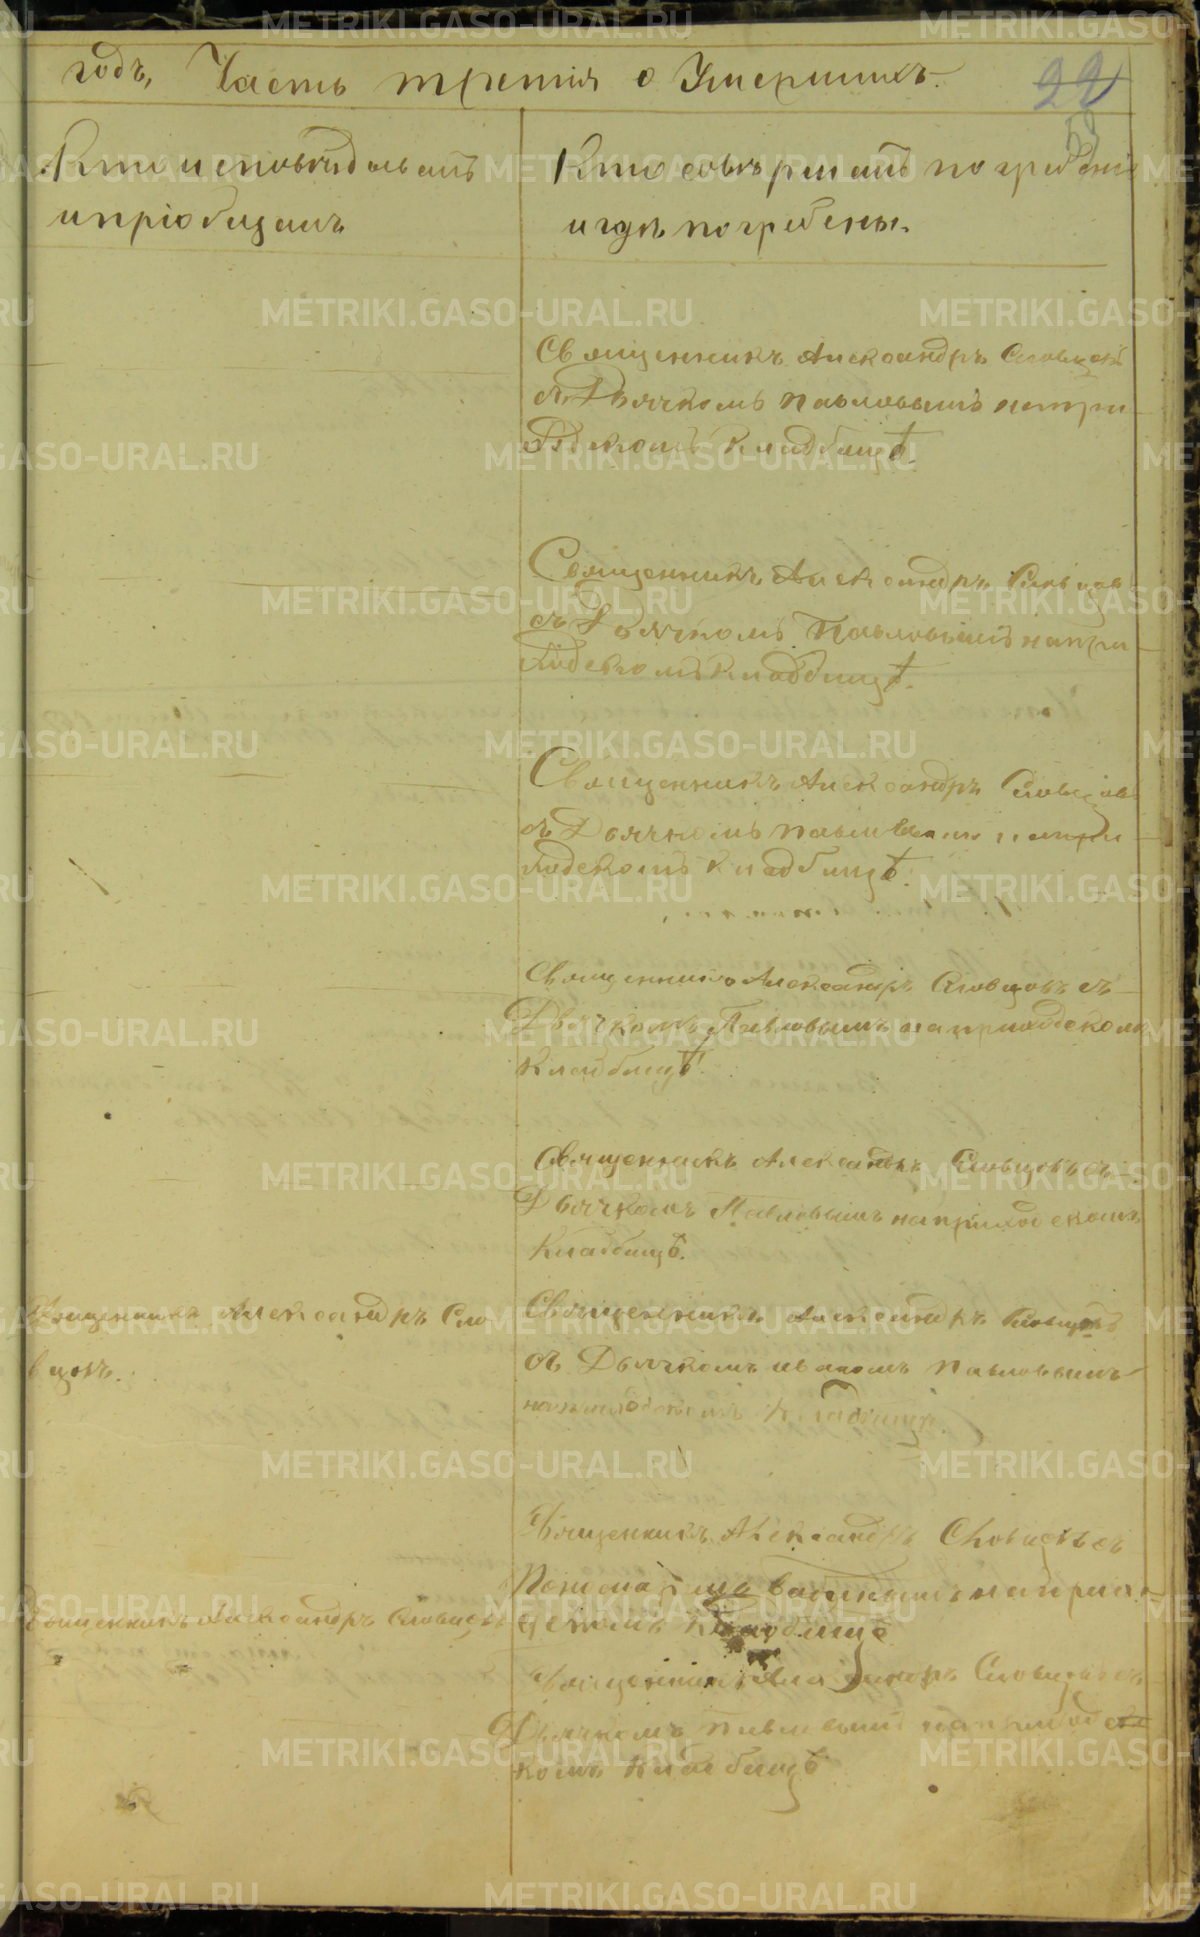 годъ, Часть третія о Умершихъ.
22
Кто исповѣдывалъ
и пріобщалъ
Кто совершалъ погребеніе
и гдѣ погребены.
Священникъ Александръ Словцовъ
съ Дьячкомъ Павловымъ на при
ходскомъ Кладбищѣ.
Священникъ Александръ Словцовъ
съ Дьячкомъ Павловымъ на при
ходскомъ Кладбищѣ.
Священникъ Александръ Словцовъ
съ Дьячкомъ Павловымъ на при
ходскомъ Кладбищѣ.
Священникъ Александръ Словцовъ съ
Дьячкомъ Павловымъ на приходскомъ
Кладбищѣ.
Священникъ Александръ Словцовъ съ
Дьячкомъ Павловымъ на приходскомъ
Кладбищѣ.
Священникъ Александръ Сло
вцовъ.
Священникъ Александръ Словцовъ
съ Дьячкомъ Иваномъ Павловымъ
на приходскомъ Кладбищѣ.
Священникъ Александръ Словцовъ съ
на прихо
Священникъ Александръ Словцовъ
Кладбищѣ
Священникъ Александръ Словцовъ съ
Дьячкомъ Павловымъ на приходс
комъ Кладбищѣ
METRIKI.GASO-URAL.RU